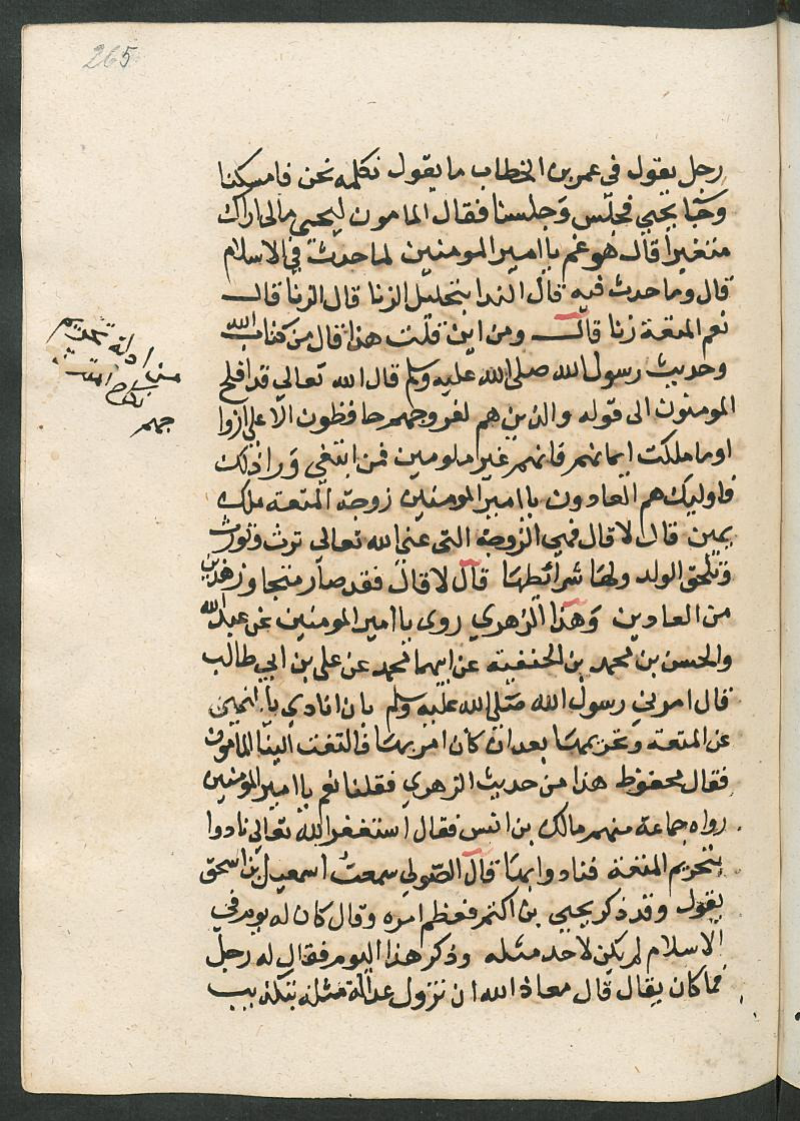 265
رجل يقول في عمر بن الخطاب ما يقول نكلمه نحن فامسكنا
وجا يحيي فجلس وجلسنا فقال المامون ليحيي مالي اراك
متغيرا قال هو غم يا امير المومنين لما حدث في الاسلام
قال وما حدث فيه قال الندا بتحليل الزنا قال الزنا قال
نعم المتعة زنا قال ومن اين قلت هذا قال من كتاب الله
وحديث رسول الله صلى الله عليه وسلم قال الله تعالي قد افلح
المومنون الى قوله والذين هم لفروجهم حافظون الا علي ازوا
جهم
اوما ملكت ايمانهم فانهم غير ملومين فمن ابتغي ورا ذلك
فاوليك هم العادون يا امير المومنين زوجة المتعة ملك
يمين قال لا قال فهي الزوجة التي عني الله تعالي ترث وتورث
وتلحق الولد ولها شرائطها قال لا قال فقد صار متجاوز هذين
من العادين وهذا الزهري روى يا امير المومنين عن عبد الله
والحسن بن محمد بن الحنفية عن ابيهما محمد عن علي بن ابي طالب
قال امرني رسول الله صلي الله عليه وسلم بان انادي بالنهي
عن المتعة وتحريمها بعد ان كان امر بها فالتفت الينا المامون
فقال محفوظ هذا من حديث الزهري فقلنا نعم يا امير المومنين
رواه جماعة منهم مالك بن انس فقال استغفر الله تعالي نادوا
بتحريم المتعة فنادوا بها قال الصولي سمعت اسمعيل بن اسحق
يقول وقد ذكر يحيي بن اكثم فعظم امره وقال كان له يوم في
الاسلام لم يكن لاحد مثله وذكر هذا اليوم فقال له رجل
فما كان يقال قال معاذ الله ان تزول عدالة مثله بتكذيب
من ادلة تحريم
نكاح المتعة